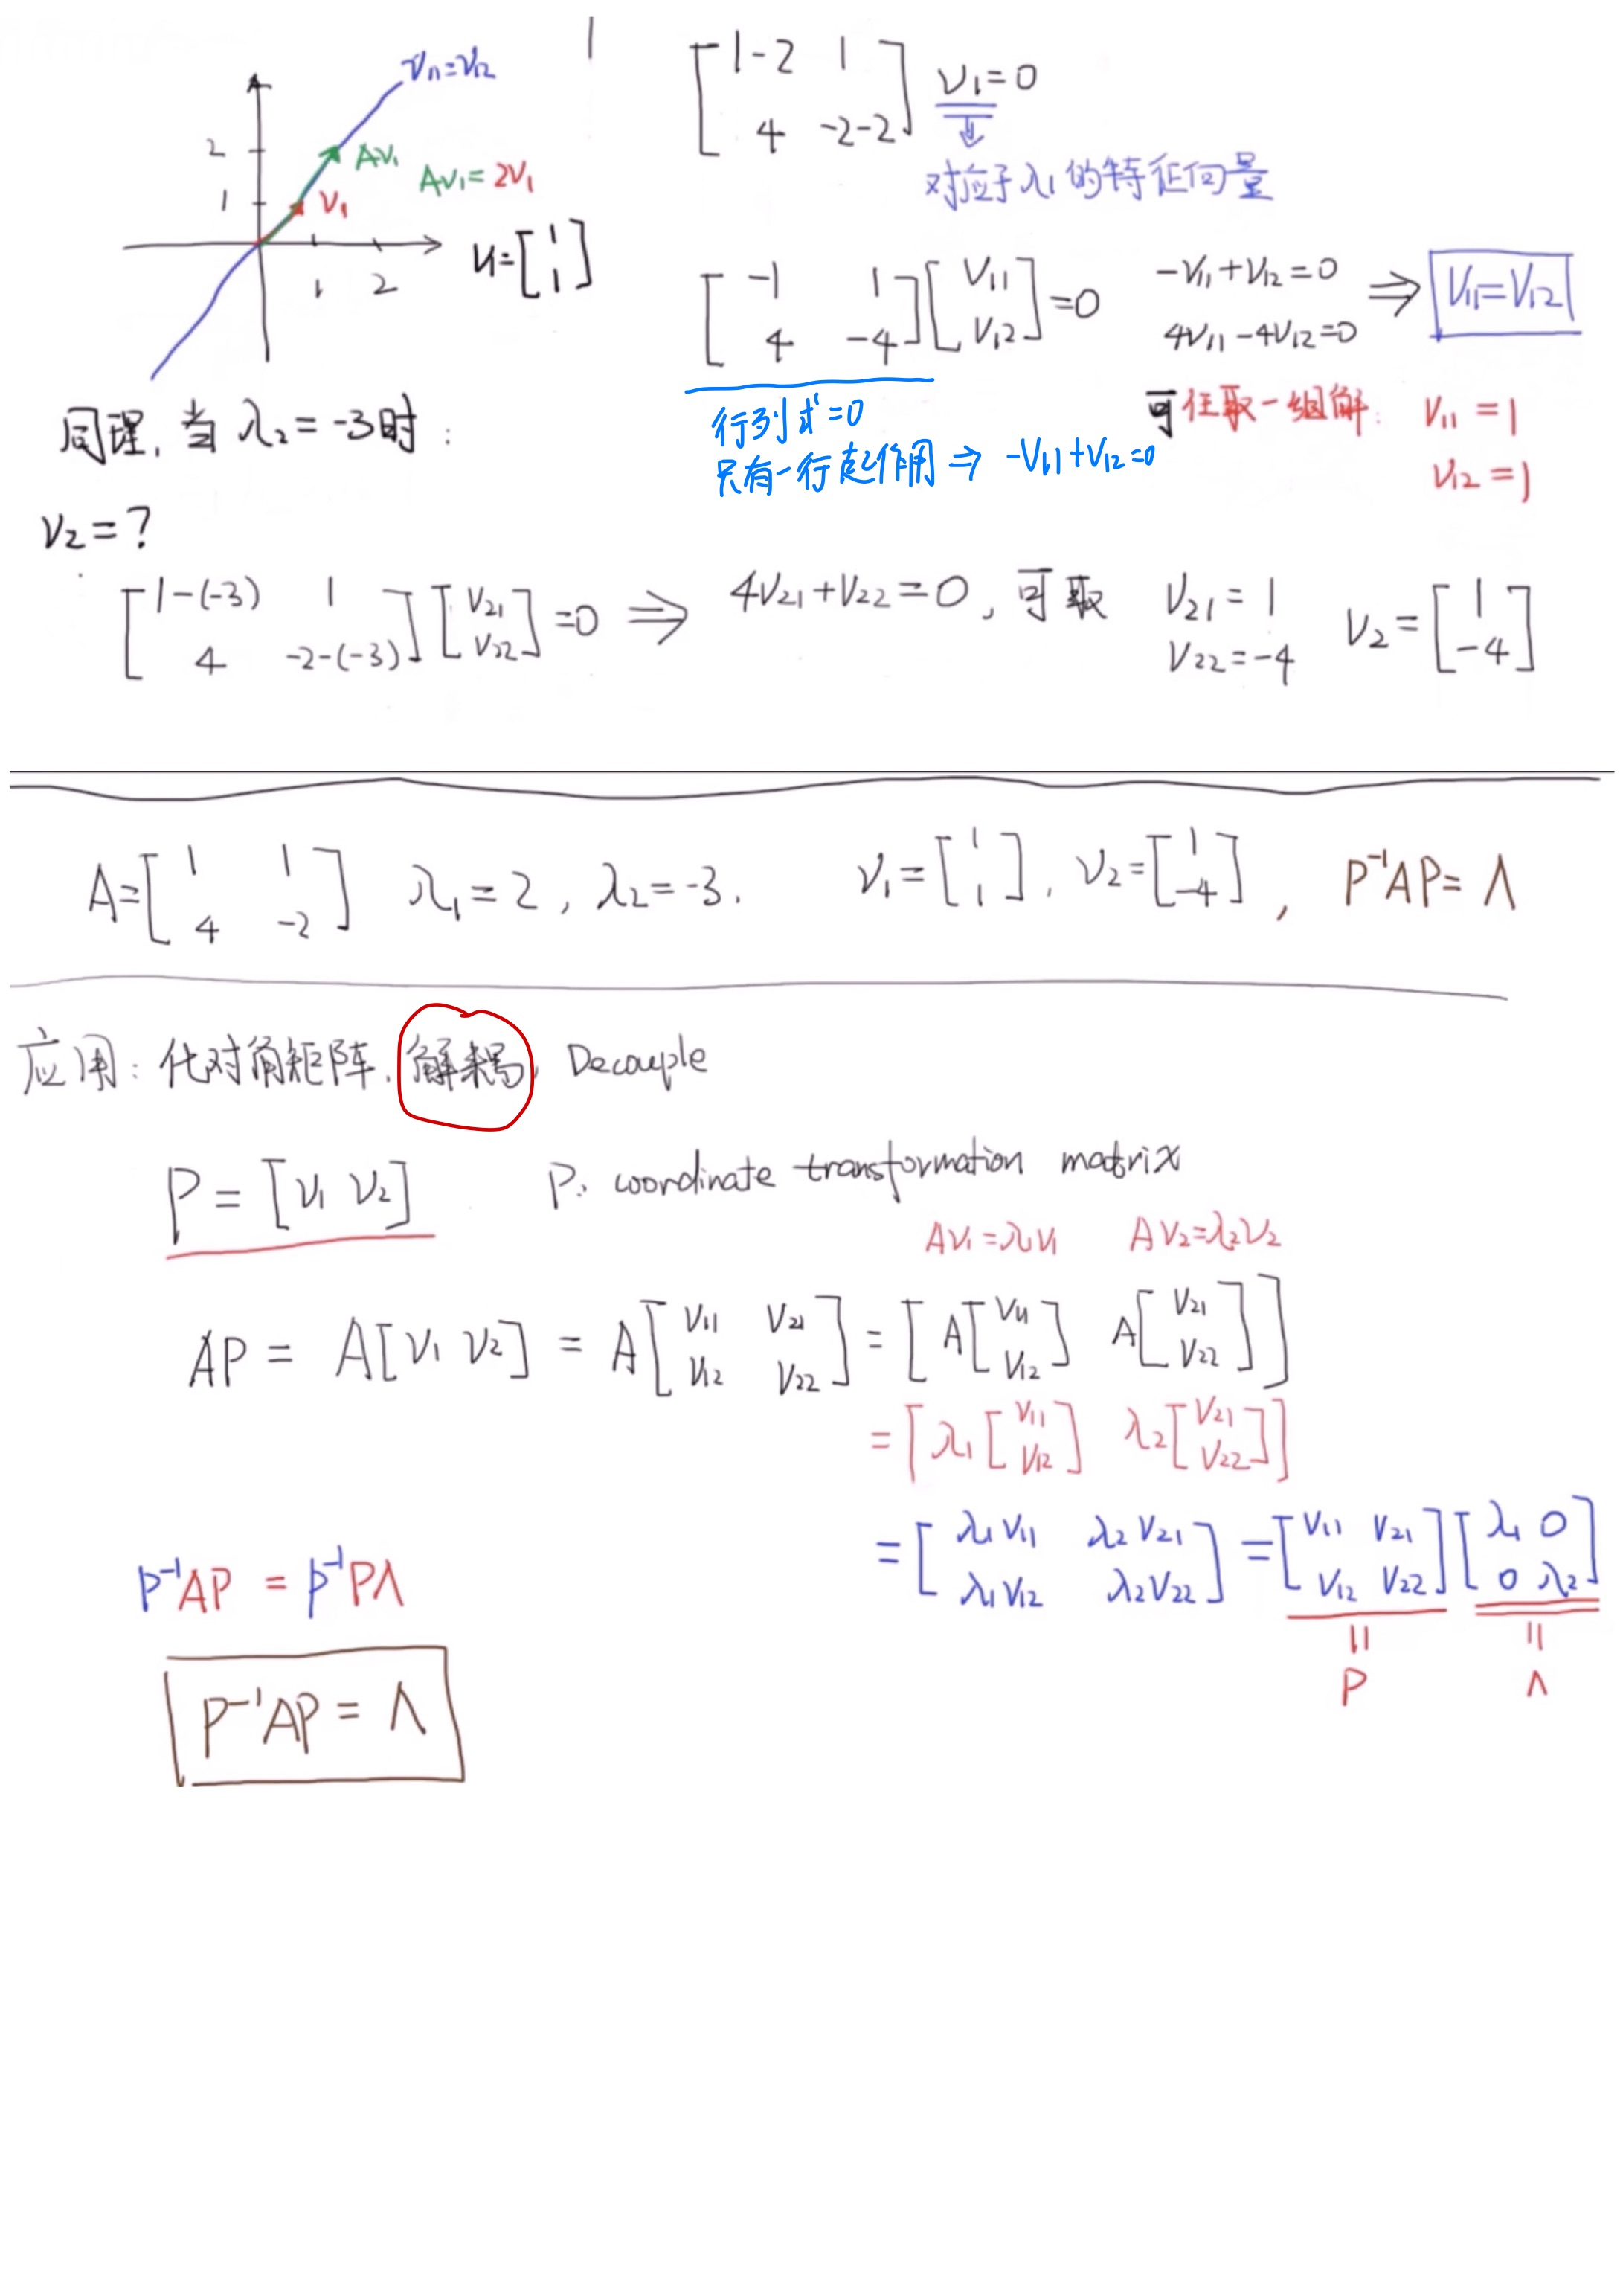 v₁₁=v₁₂
2
1
Av₁
v₁
Av₁=2v₁
1 2
v₁=[1; 1]
[1-2 1; 4 -2-2] v₁=0
对应于λ₁的特征向量
[-1 1; 4 -4][v₁₁; v₁₂]=0
-v₁₁+v₁₂=0
4v₁₁-4v₁₂=0
⇒ v₁₁=v₁₂
行列式=0
只有一行起作用 ⇒ -v₁₁+v₁₂=0
可任取一组解: v₁₁=1
v₁₂=1
同理, 当λ₂=-3时:
v₂=?
[1-(-3) 1; 4 -2-(-3)][v₂₁; v₂₂]=0 ⇒ 4v₂₁+v₂₂=0, 可取 v₂₁=1
v₂₂=-4
v₂=[1; -4]
A=[1 1; 4 -2] λ₁=2, λ₂=-3. v₁=[1; 1], v₂=[1; -4], P⁻¹AP=Λ
应用: 化对角矩阵, 解耦, Decouple
P=[v₁ v₂] P: coordinate transformation matrix
Av₁=λ₁v₁ Av₂=λ₂v₂
AP = A[v₁ v₂] = A[v₁₁ v₂₁; v₁₂ v₂₂] = [A[v₁₁; v₁₂] A[v₂₁; v₂₂]]
= [λ₁[v₁₁; v₁₂] λ₂[v₂₁; v₂₂]]
= [λ₁v₁₁ λ₂v₂₁; λ₁v₁₂ λ₂v₂₂] = [v₁₁ v₂₁; v₁₂ v₂₂][λ₁ 0; 0 λ₂]
= P = Λ
P⁻¹AP = P⁻¹PΛ
P⁻¹AP = Λ